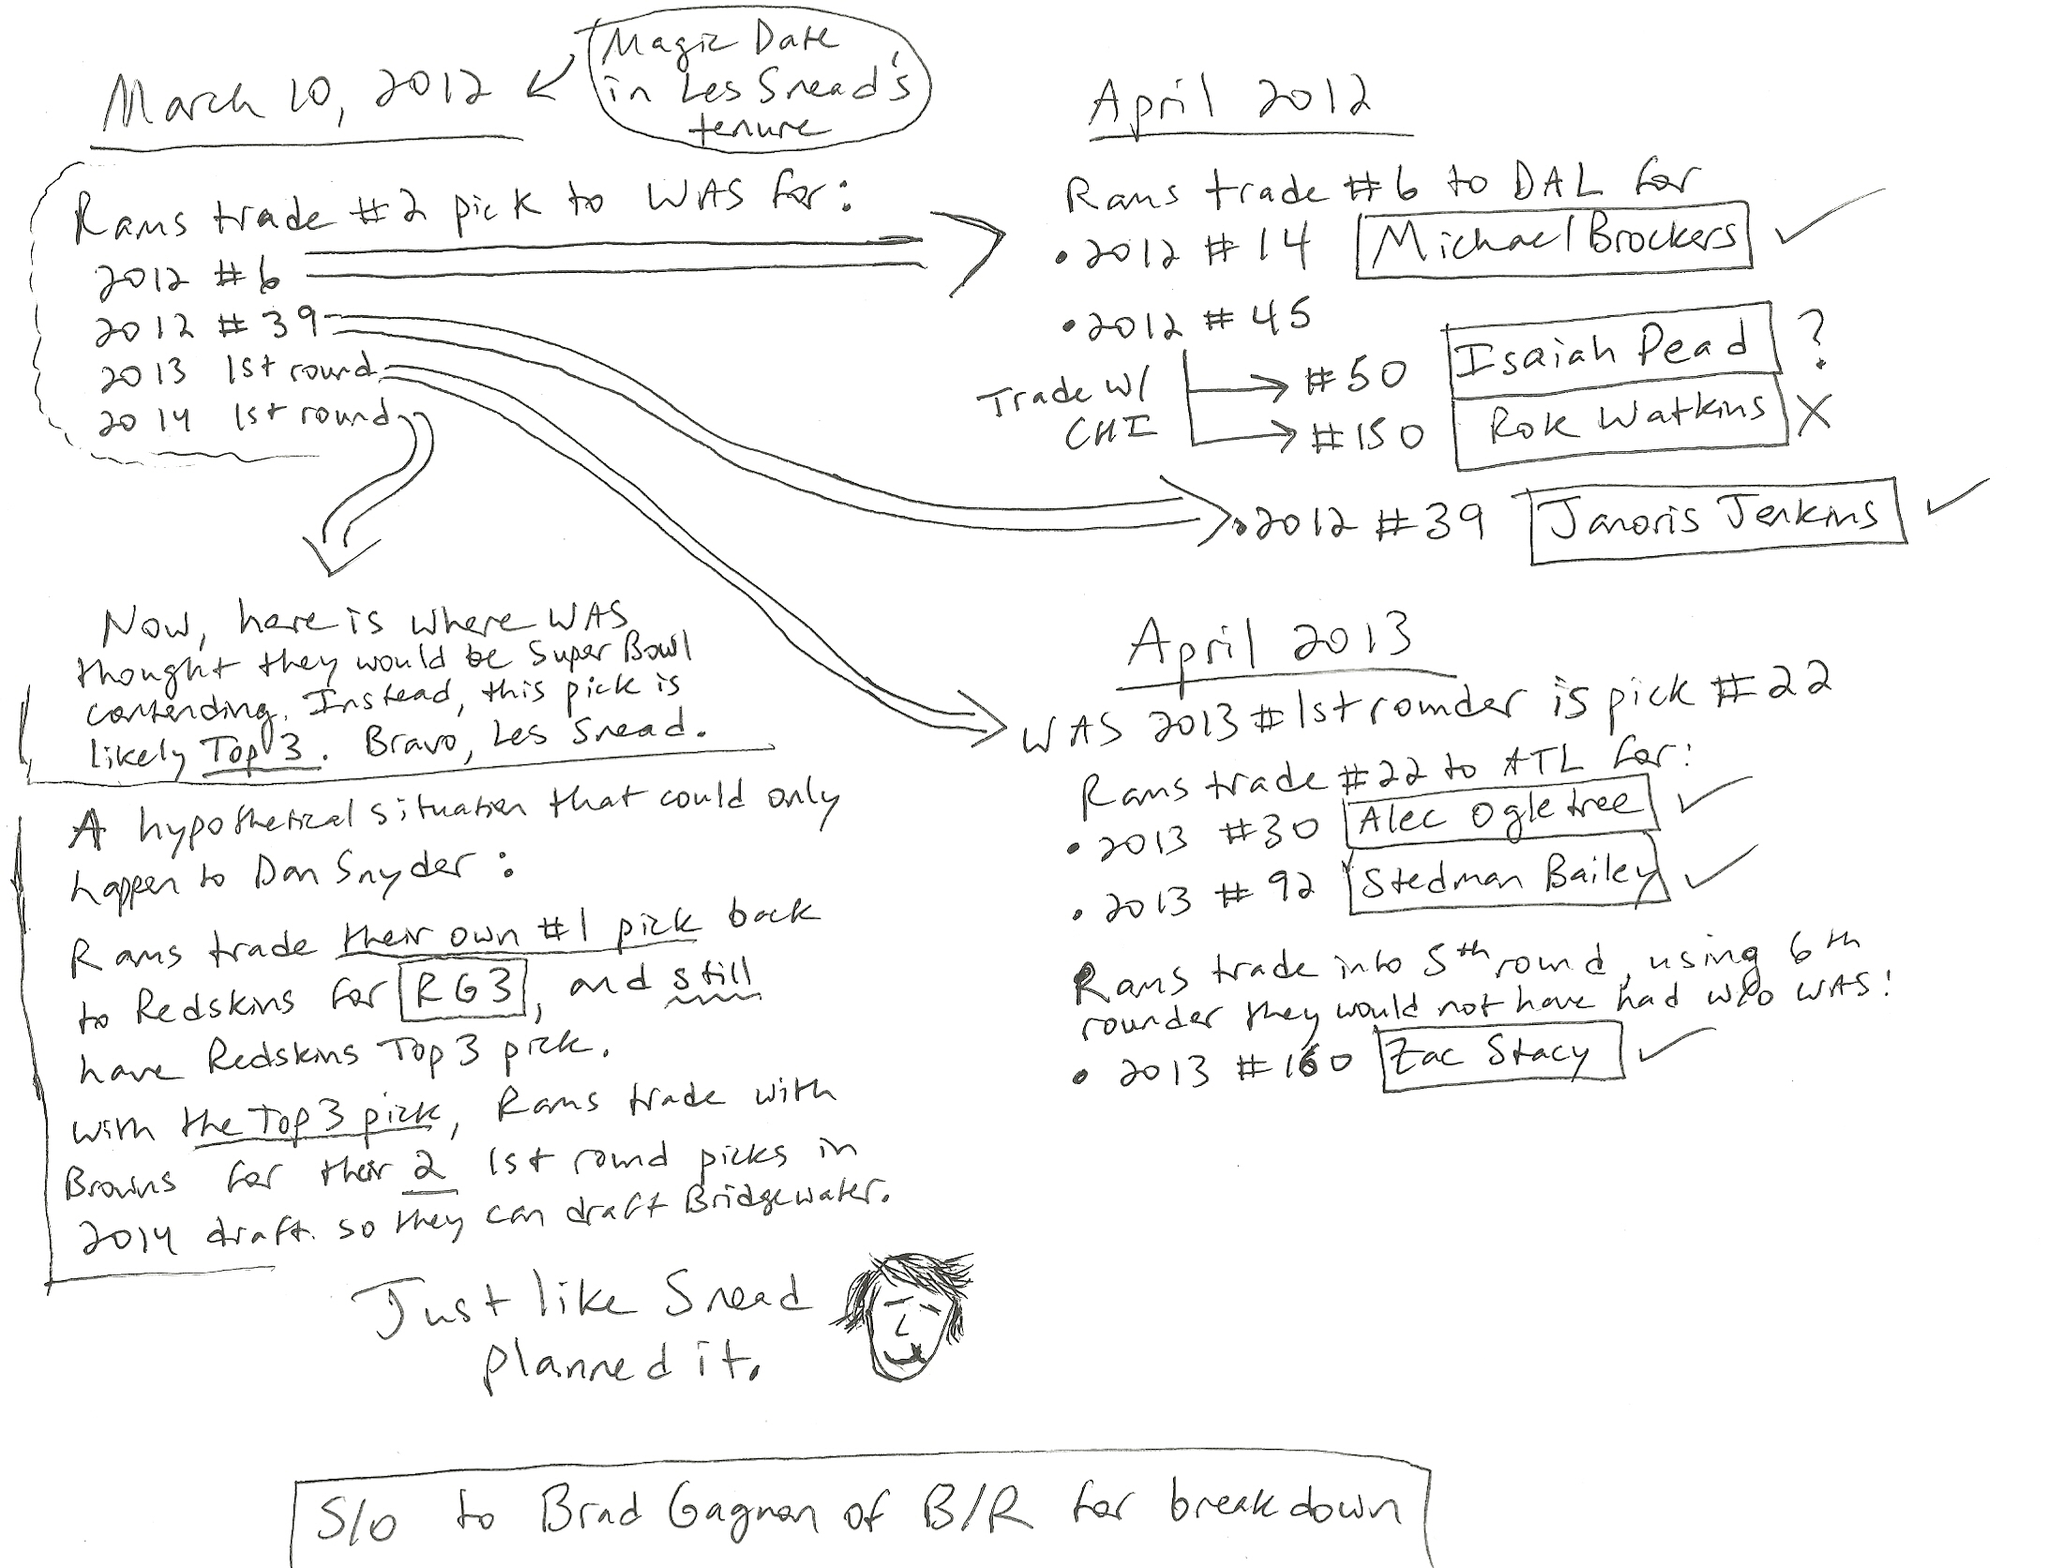 March 10, 2012
Magic Date
in Les Snead's
tenure
Rams trade #2 pick to WAS for:
2012 #6
2012 #39
2013 1st round
2014 1st round
Now, here is where WAS
thought they would be Super Bowl
contending. Instead, this pick is
likely Top 3. Bravo, Les Snead.
A hypothetical situation that could only
happen to Dan Snyder:
Rams trade their own #1 pick back
to Redskins for RG3, and still
have Redskins Top 3 pick.
With the Top 3 pick, Rams trade with
Browns for their 2 1st round picks in
2014 draft. so they can draft Bridgewater.
Just like Snead
planned it.
April 2012
Rams trade #6 to DAL for
• 2012 #14 Michael Brockers ✓
• 2012 #45
Trade w/
CHI
#50 Isaiah Pead ?
#150 Rok Watkins X
• 2012 #39 Janoris Jenkins ✓
April 2013
WAS 2013 #1st rounder is pick #22
Rams trade #22 to ATL for:
• 2013 #30 Alec Ogletree ✓
• 2013 #92 Stedman Bailey ✓
Rams trade into 5th round, using 6th
rounder they would not have had w/o WAS!
• 2013 #160 Zac Stacy ✓
S/o to Brad Gagnon of B/R for breakdown